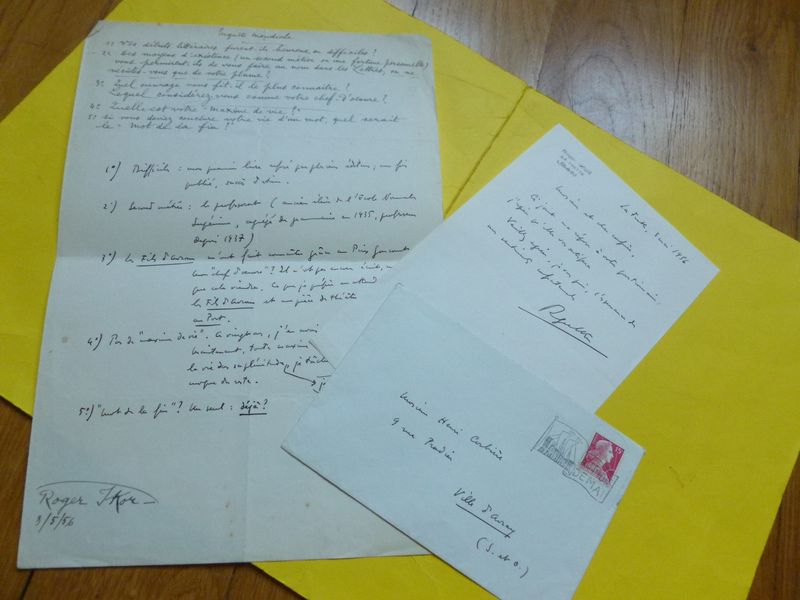 Enquête mondiale
1º Vos débuts littéraires furent-ils heureux ou difficiles ?
2º Des moyens d'existence (un second métier ou une fortune personnelle)
vous permirent-ils de vous faire un nom dans les Lettres, ou ne
vécûtes-vous que de votre plume ?
3º Quel ouvrage vous fit-il le plus connaître ?
Lequel considérez-vous comme votre chef-d'œuvre ?
4º Quelle est votre "maxime de vie" ?
5º Si vous deviez conclure votre vie d'un mot, quel serait
le "Mot de la fin" ?
1º) Difficiles : mon premier livre refusé par plusieurs éditeurs, une fois
publié, succès d'estime.
2º) Second métier : le professorat (ancien élève de l'École Normale
Supérieure, agrégé de grammaire en 1935, professeur
depuis 1937)
3º) Les Fils d'Avrom m'ont fait connaître grâce au Prix Goncourt
mon "chef d'œuvre" ? Il n'est pas encore écrit,
que cela viendra. Ce que je préfère en attend
les Fils d'Avrom et une pièce de théâtre
au Port.
4º) Pas de "maxime de vie". À vingt ans, j'en avais
maintenant, toute maxime
la vie dans sa plénitude, je tâche
moque du reste.
5º) "Mot de la fin" ? Un seul : déjà ?
Roger Ikor
3/5/56
La Frette, 3 mai 1956
Monsieur et cher confrère,
Ci-joint ma réponse à votre questionnaire,
Veuillez agréer, je vous prie, l'expression de
mes sentiments
Monsieur Henri Corbière
9 rue Pradier
Ville d'Avray
(S. et O.)
15